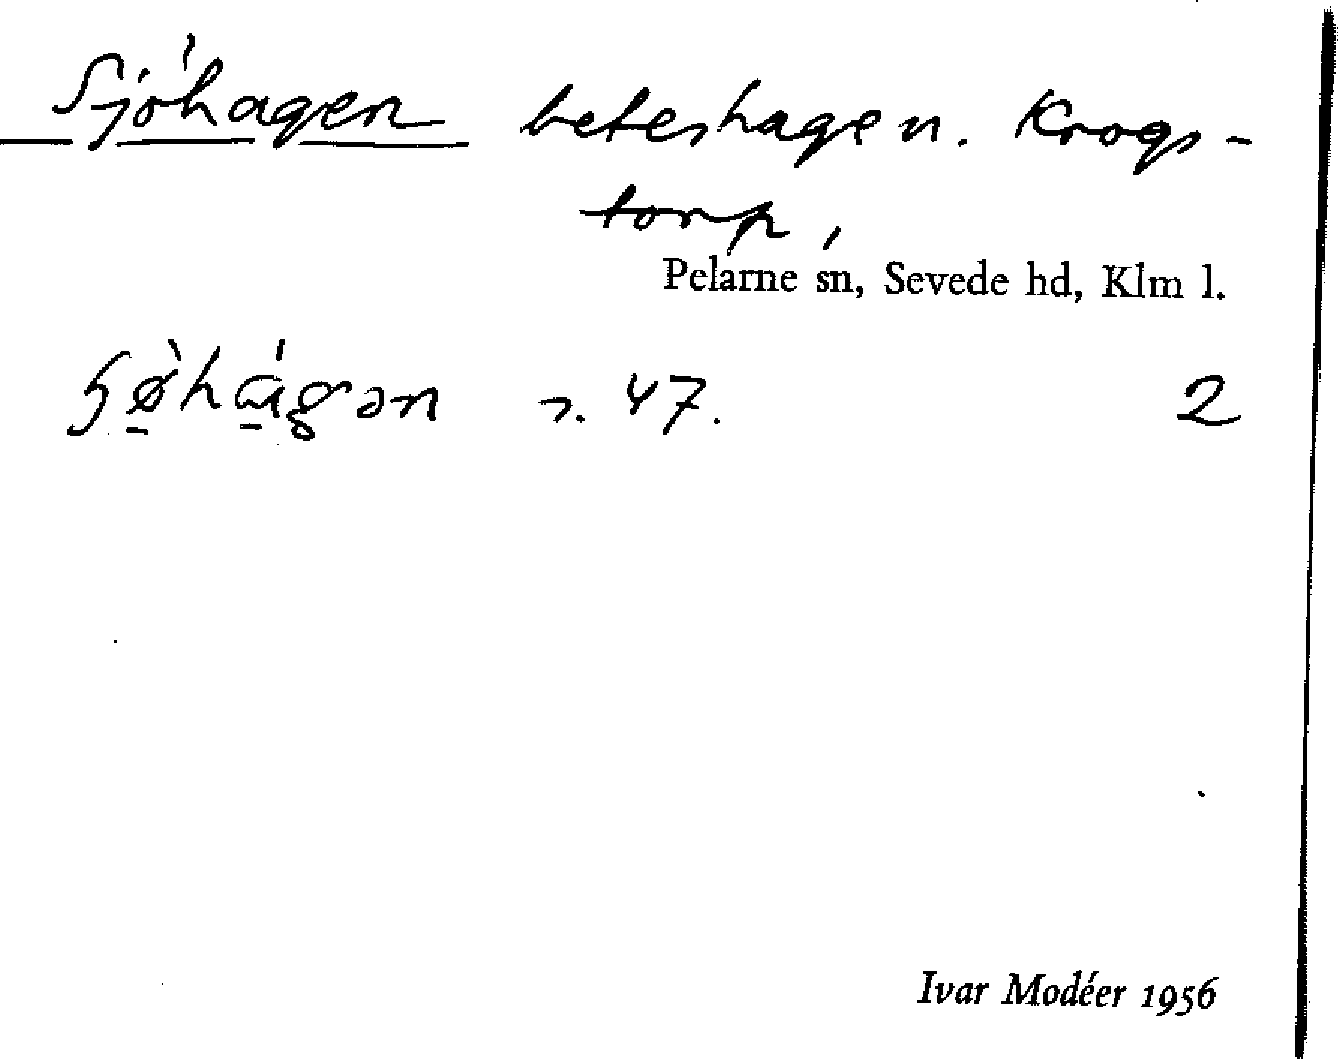 Sjöhagen beteshagen. Krogs-
torp,
Pelarne sn, Sevede hd, Klm l.
47. 2
Ivar Modéer 1956